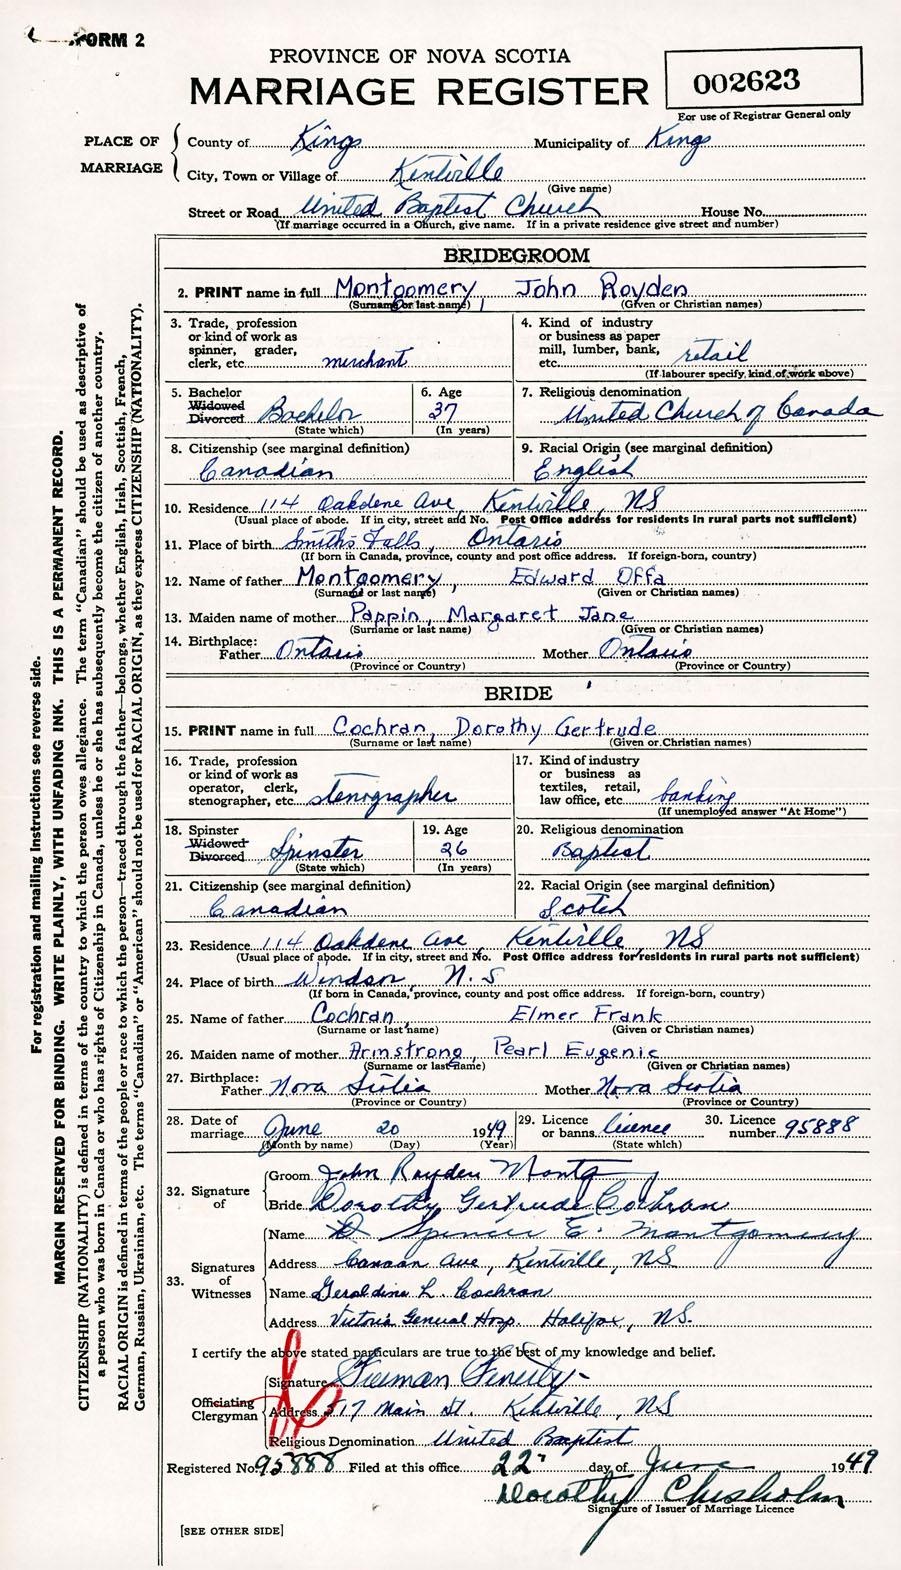 FORM 2
PROVINCE OF NOVA SCOTIA
MARRIAGE REGISTER
002623
For use of Registrar General only
PLACE OF MARRIAGE
County of Kings Municipality of Kings
City, Town or Village of Kentville
(Give name)
Street or Road United Baptist Church House No.
(If marriage occurred in a Church, give name. If in a private residence give street and number)
BRIDEGROOM
2. PRINT name in full Montgomery, John Royden
(Surname or last name) (Given or Christian names)
3. Trade, profession or kind of work as spinner, grader, clerk, etc. merchant
4. Kind of industry or business as paper mill, lumber, bank, etc. retail
(If labourer specify kind of work above)
5. Bachelor Widowed Divorced Bachelor
(State which)
6. Age 37
(In years)
7. Religious denomination
United Church of Canada
8. Citizenship (see marginal definition)
Canadian
9. Racial Origin (see marginal definition)
English
10. Residence 114 Oakdene Ave, Kentville, NS
(Usual place of abode. If in city, street and No. Post Office address for residents in rural parts not sufficient)
11. Place of birth Smiths Falls, Ontario
(If born in Canada, province, county and post office address. If foreign-born, country)
12. Name of father Montgomery, Edward Offa
(Surname or last name) (Given or Christian names)
13. Maiden name of mother Pappin, Margaret Jane
(Surname or last name) (Given or Christian names)
14. Birthplace:
Father Ontario Mother Ontario
(Province or Country) (Province or Country)
BRIDE
15. PRINT name in full Cochran, Dorothy Gertrude
(Surname or last name) (Given or Christian names)
16. Trade, profession or kind of work as operator, clerk, stenographer, etc. stenographer
17. Kind of industry or business as textiles, retail, law office, etc. banking
(If unemployed answer "At Home")
18. Spinster Widowed Divorced Spinster
(State which)
19. Age 26
(In years)
20. Religious denomination
Baptist
21. Citizenship (see marginal definition)
Canadian
22. Racial Origin (see marginal definition)
Scotch
23. Residence 114 Oakdene Ave, Kentville, NS
(Usual place of abode. If in city, street and No. Post Office address for residents in rural parts not sufficient)
24. Place of birth Windsor, N.S
(If born in Canada, province, county and post office address. If foreign-born, country)
25. Name of father Cochran, Elmer Frank
(Surname or last name) (Given or Christian names)
26. Maiden name of mother Armstrong, Pearl Eugenie
(Surname or last name) (Given or Christian names)
27. Birthplace:
Father Nova Scotia Mother Nova Scotia
(Province or Country) (Province or Country)
28. Date of marriage June 20 1949
(Month by name) (Day) (Year)
29. Licence or banns licence
(State which)
30. Licence number 95888
32. Signature of
Groom John Royden Montg
Bride Dorothy Gertrude Cochran
33. Signatures of Witnesses
Name Spencer E. Montgomery
Address Canaan Ave, Kentville, NS
Name Geraldine L. Cochran
Address Victoria General Hosp. Halifax, NS.
I certify the above stated particulars are true to the best of my knowledge and belief.
Officiating Clergyman
Signature Freeman Fenerty
Address 517 Main St. Kentville, NS
Religious Denomination United Baptist
Registered No. 95888 Filed at this office 22 day of June 1949
Dorothy Chisholm
Signature of Issuer of Marriage Licence
[SEE OTHER SIDE]
For registration and mailing Instructions see reverse side.
MARGIN RESERVED FOR BINDING. WRITE PLAINLY, WITH UNFADING INK. THIS IS A PERMANENT RECORD.
CITIZENSHIP (NATIONALITY) is defined in terms of the country to which the person owes allegiance. The term "Canadian" should be used as descriptive of
a person who was born in Canada or who has rights of Citizenship in Canada, unless he or she has subsequently become the citizen of another country.
RACIAL ORIGIN is defined in terms of the people or race to which the person—traced through the father—belongs, whether English, Irish, Scottish, French,
German, Russian, Ukrainian, etc. The terms "Canadian" or "American" should not be used for RACIAL ORIGIN, as they express CITIZENSHIP (NATIONALITY).